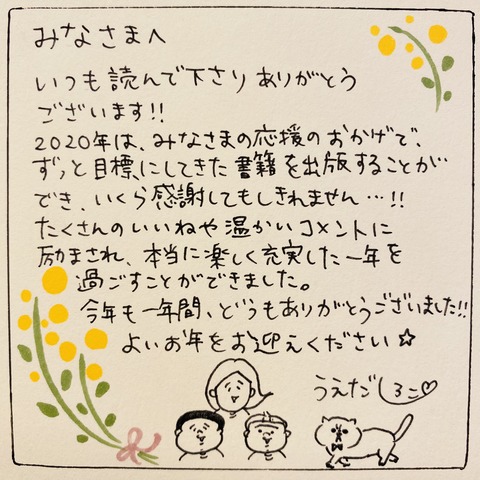 みなさまへ
いつも読んで下さり ありがとう
ございます!!
2020年は、みなさまの応援のおかげで、
ずっと目標にしてきた書籍を出版することが
でき、いくら感謝してもしきれません…!!
たくさんのいいねや温かいコメントに
励まされ、本当に楽しく充実した一年を
過ごすことができました。
今年も一年間、どうもありがとうございました!!
よいお年をお迎えください☆
うえだしろこ♡